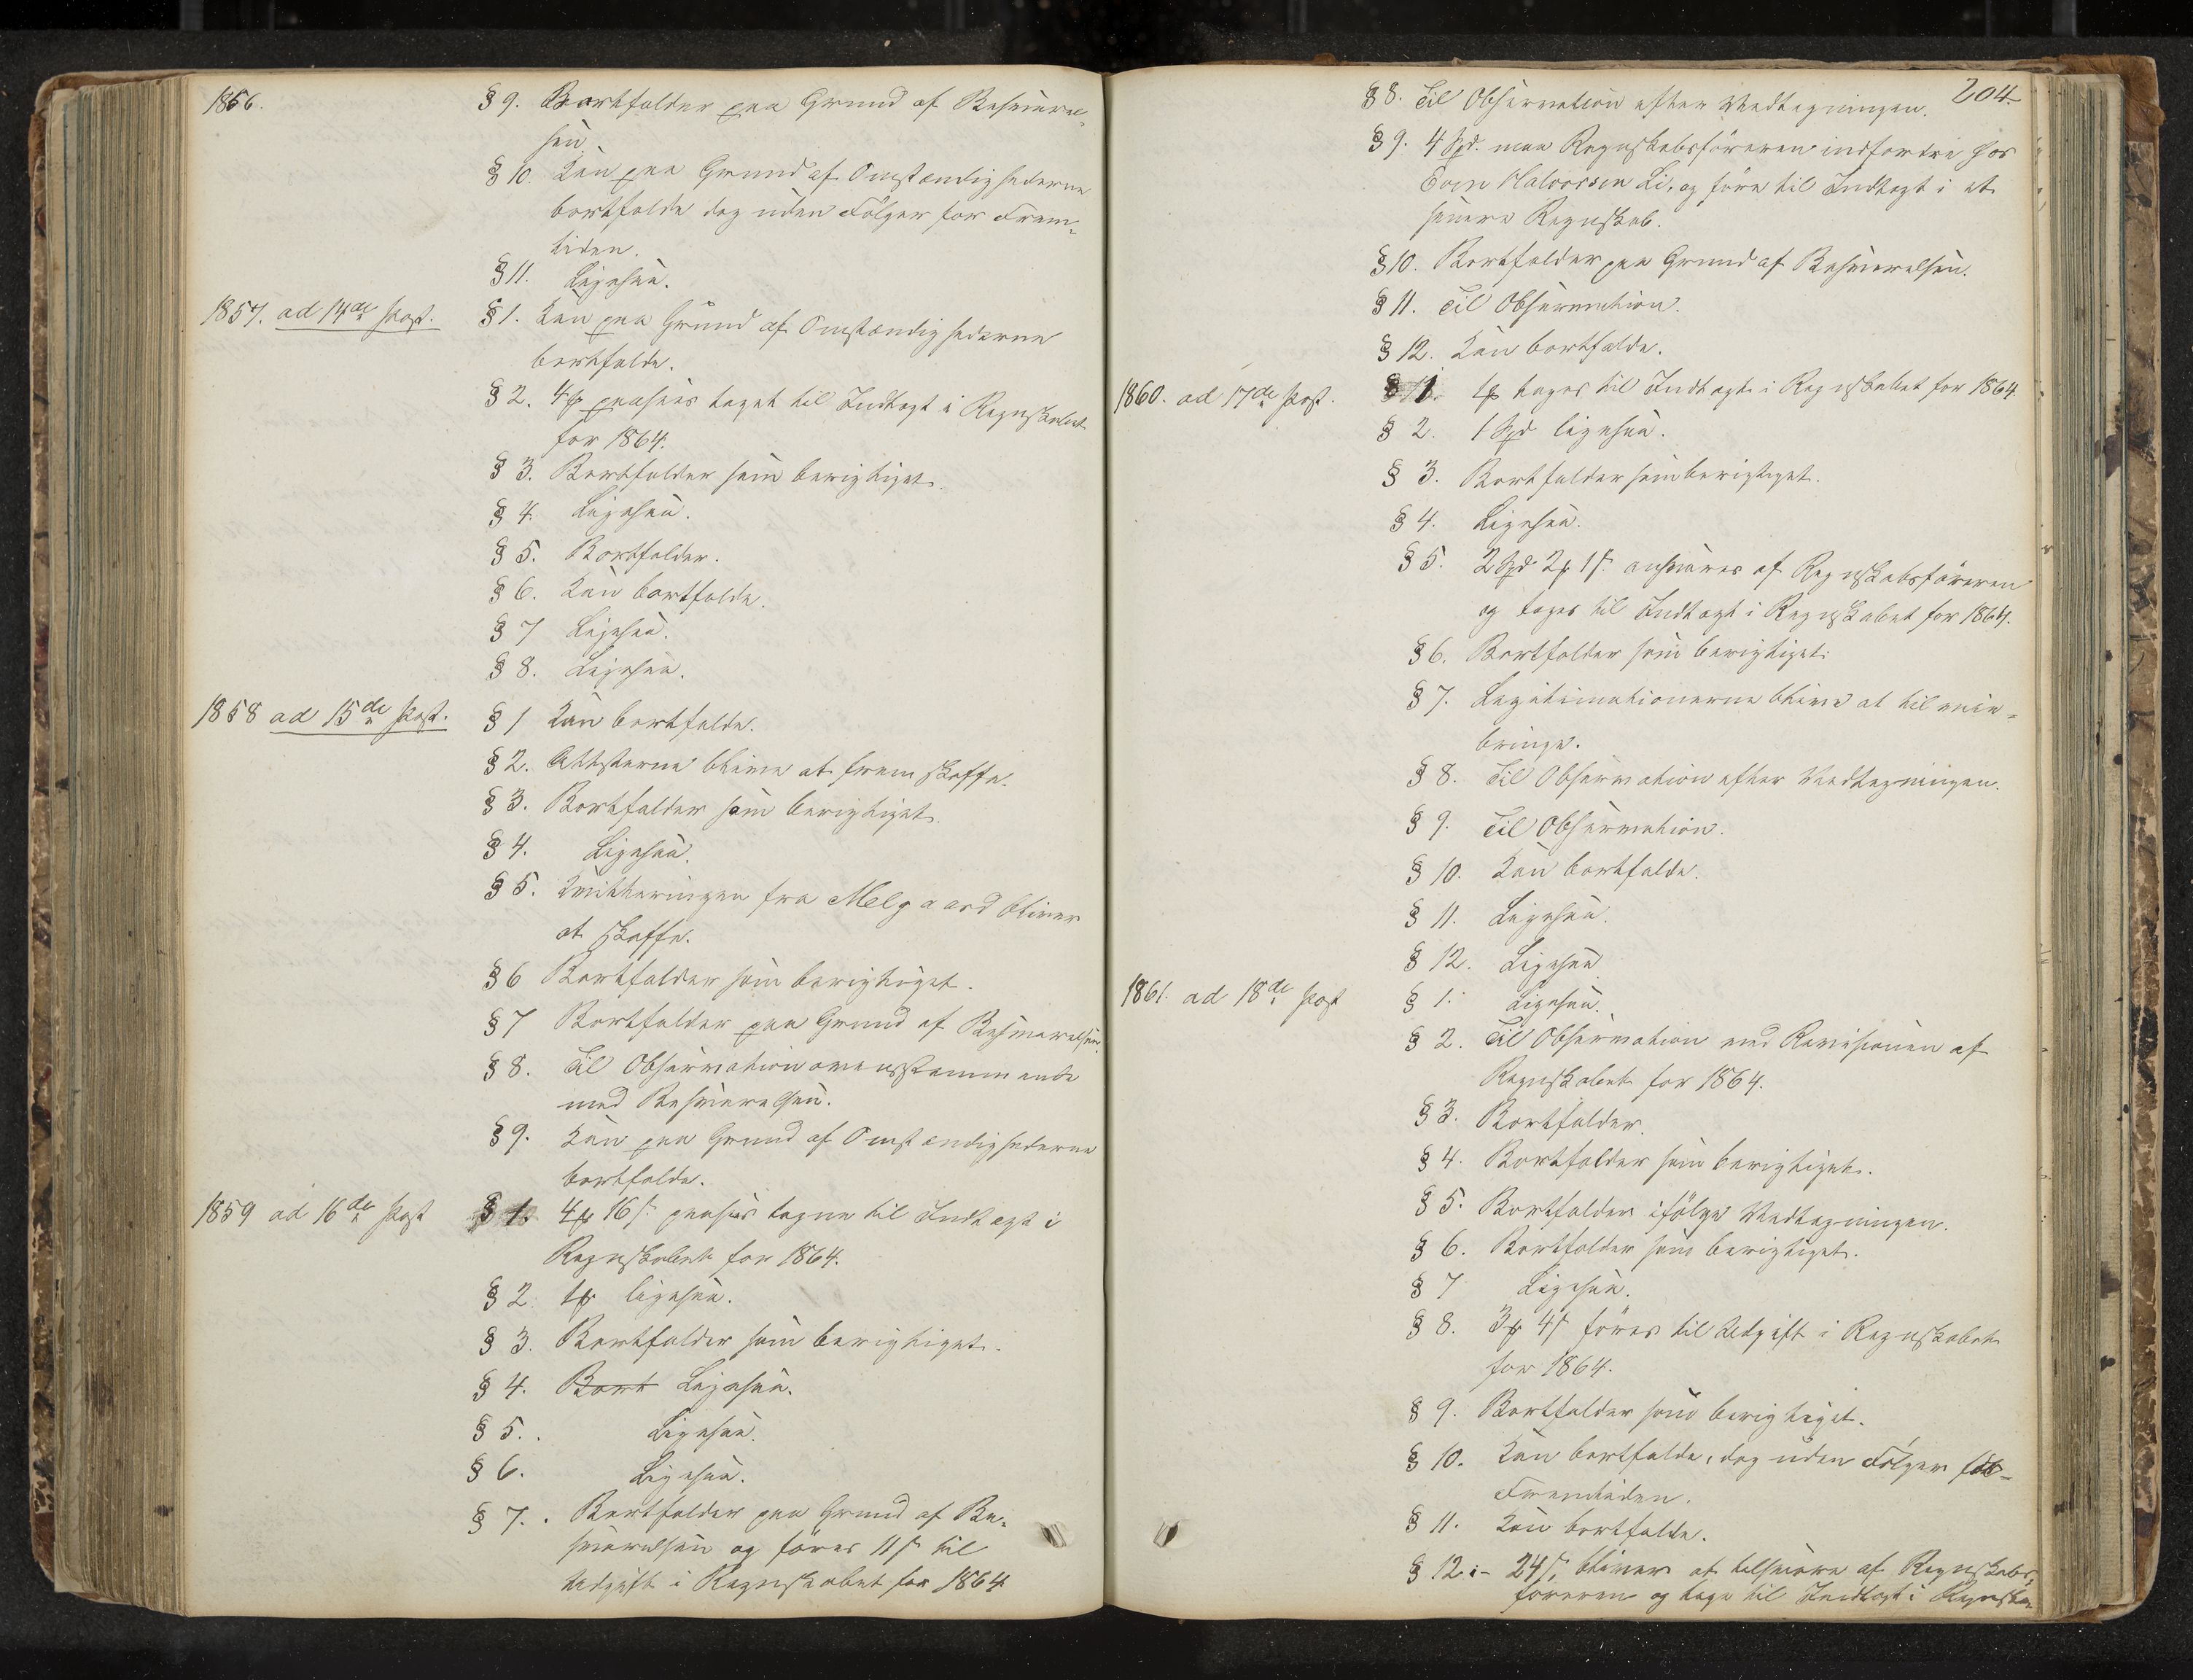 1856. § 9. Bortfalder paa Grund af Besvarel-
sen.
§ 10. Kan paa Grund af Omstændighederne
bortfalde dog uden Følger for Frem-
tiden.
§ 11. Ligesaa.
1857. ad 14de Post. § 1. Kan paa Grund af Omstændighederne
bortfalde.
§ 2. 4 paasees taget til Indtægt i Regnskabet
for 1864.
§ 3. Bortfalder som berigtiget.
§ 4. Ligesaa.
§ 5. Bortfalder.
§ 6. Kan bortfalde.
§ 7 Ligesaa.
§ 8. Ligesaa.
1858 ad 15de Post. § 1 Kan bortfalde.
§ 2. Attesterne blive at fremskaffe.
§ 3. Bortfalder som berigtiget.
§ 4. Ligesaa.
§ 5. Qvitteringen fra Melgaard bliver
at skaffe.
§ 6 Bortfalder som berigtiget.
§ 7 Bortfalder paa Grund af Besvarelsen.
§ 8. Til Observation overensstemmende
med Besvarelsen.
§ 9. Kan paa Grund af Omstændighederne
bortfalde.
1859 ad 16de Post § 1. 4 16 s. paasees tagne til Indtægt i
Regnskabet for 1864.
§ 2. 1 ligesaa.
§ 3. Bortfalder som berigtiget.
§ 4. Bort Ligesaa.
§ 5. Ligesaa.
§ 6. Ligesaa.
§ 7. Bortfalder paa Grund af Be-
svarelsen og føres 11 s til
Udgift i Regnskabet for 1864
204.
§ 8. Til Observation efter Vedtegningen.
§ 9. 4 Spd. maa Regnskabsføreren indfordre hos
Even Halvorsen Li, og føre til Indtægt i et
senere Regnskab.
§ 10. Bortfalder paa Grund af Besvarelsen.
§ 11. Til Observation.
§ 12. Kan bortfalde.
1860. ad 17de Post. § 1. 1 tages til Indtægt i Regnskabet for 1864
§ 2. 1 Spd ligesaa.
§ 3. Bortfalder som berigtiget.
§ 4. Ligesaa.
§ 5. 2 Spd 2 1 s. ansvares af Regnskabsføreren
og tages til Indtægt i Regnskabet for 1864.
§ 6. Bortfalder som berigtiget.
§ 7. Legitimationerne blive at tilveie-
bringe.
§ 8. Til Observation efter Vedtegningen.
§ 9. Til Observation.
§ 10. Kan bortfalde.
§ 11. Ligesaa.
§ 12. Ligesaa
1861. ad 18de Post § 1. Ligesaa.
§ 2. Til Observation ved Revisionen af
Regnskabet for 1864.
§ 3. Bortfalder.
§ 4. Bortfalder som berigtiget.
§ 5. Bortfalder ifølge Vedtegningen.
§ 6. Bortfalder som berigtiget.
§ 7 Ligesaa.
§ 8. 3 4 s føres til Udgift i Regnskabet
for 1864.
§ 9. Bortfalder som berigtiget.
§ 10. Kan bortfalde, dog uden Følger for
Fremtiden.
§ 11. Kan bortfalde.
§ 12. 24 s. bliver at tilsvare af Regnskabs-
føreren og tage til Indtægt i Regnska-